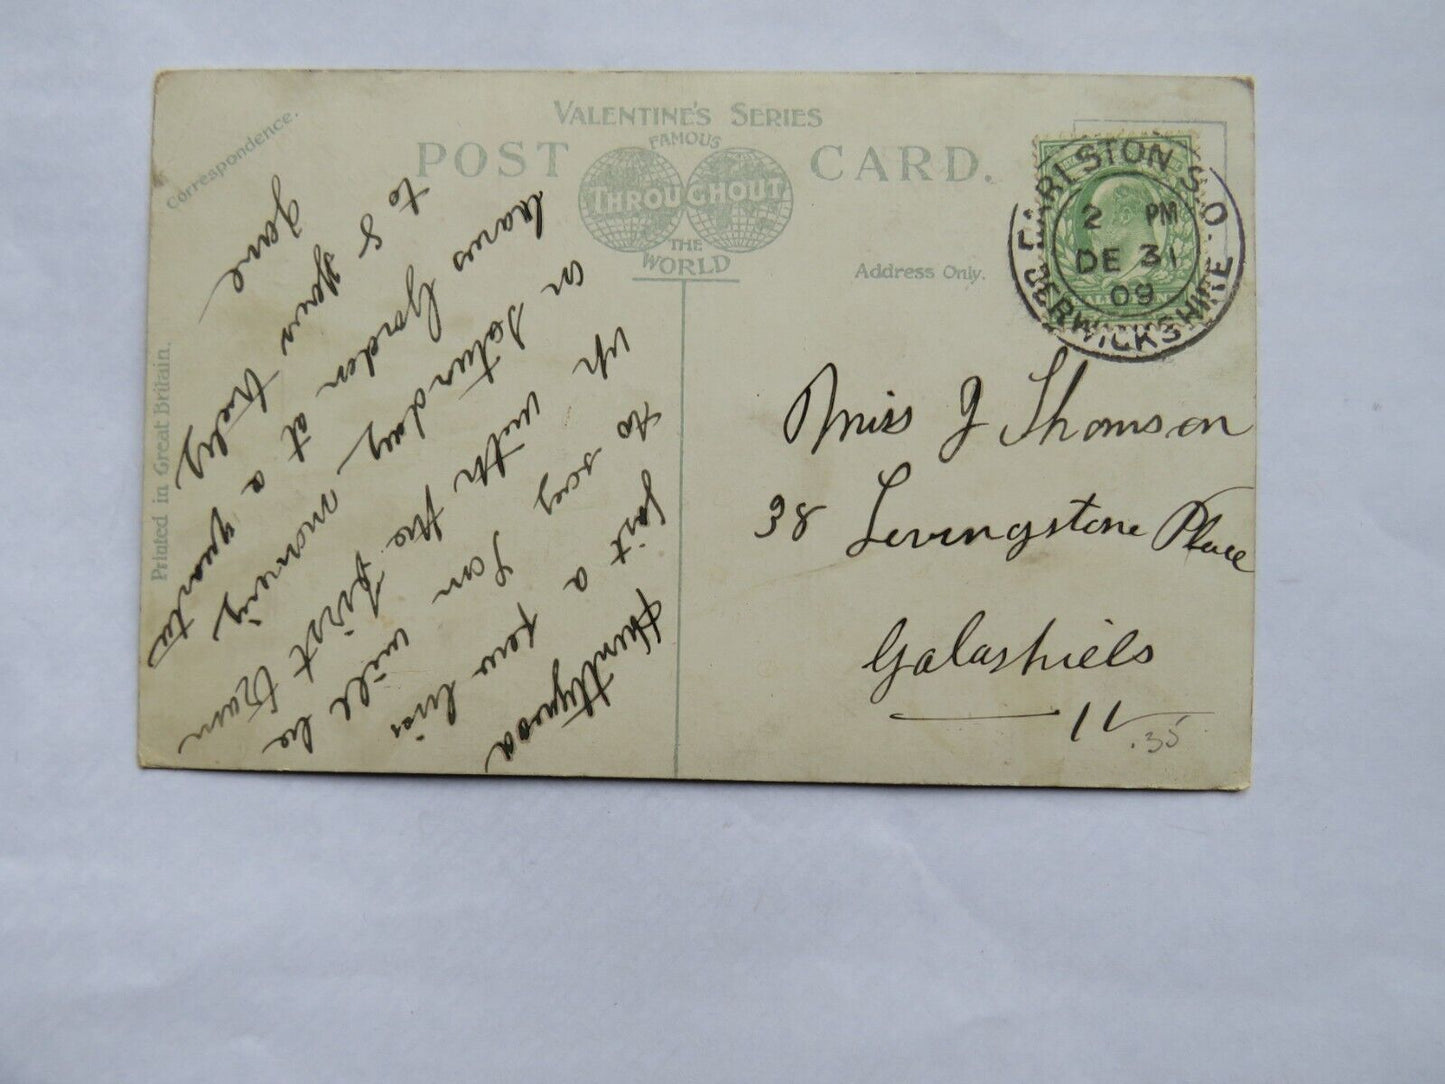 VALENTINE'S SERIES
FAMOUS
POST CARD.
THROUGHOUT
THE
WORLD
Correspondence.
Address Only.
Printed in Great Britain.
EARLSTON S.O.
2 PM
DE 31
09
BERWICKSHIRE
Huntlywood
Just a few lines
to say I am will be
up with the first train
on Saturday morning
leaves Gordon at a quarter
to 8 yours truly
Jane
Miss J Thomson
38 Livingstone Place
Galashiels
.35